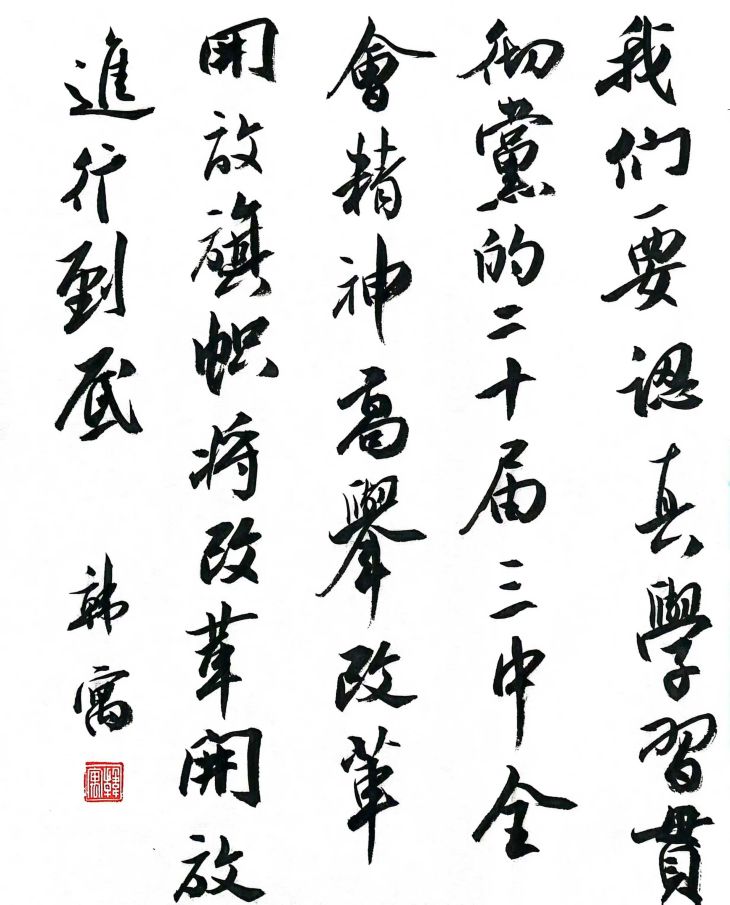 我们要認真學習貫
彻黨的二十届三中全
會精神高舉改革
開放旗帜将改革開放
進行到底
韩寓
韓寓